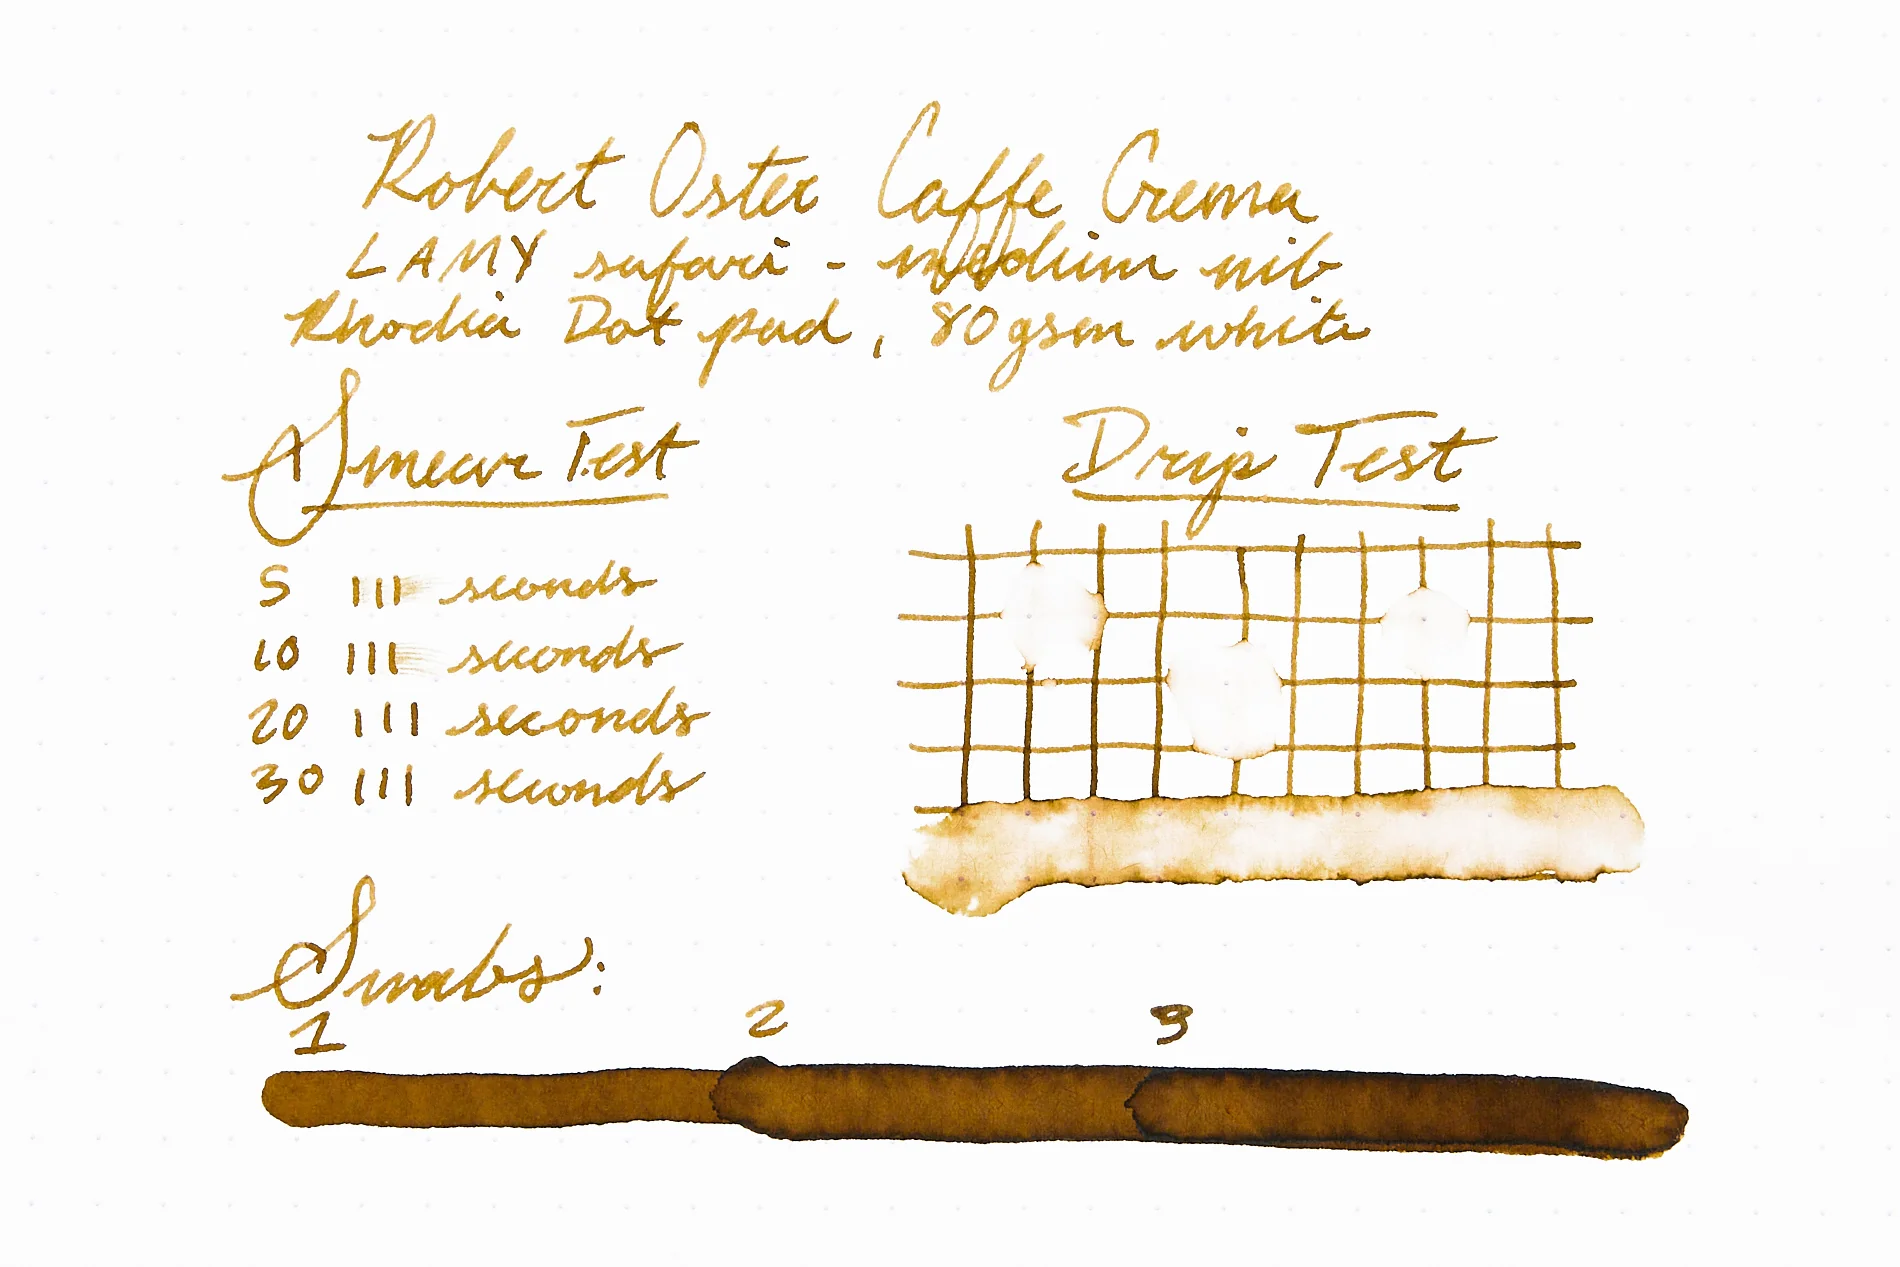 Robert Oster Caffe Crema
LAMY safari - medium nib
Rhodia Dot pad, 80gsm white
Smear Test
5 III seconds
10 III seconds
20 III seconds
30 III seconds
Drip Test
Swabs:
1 2 3